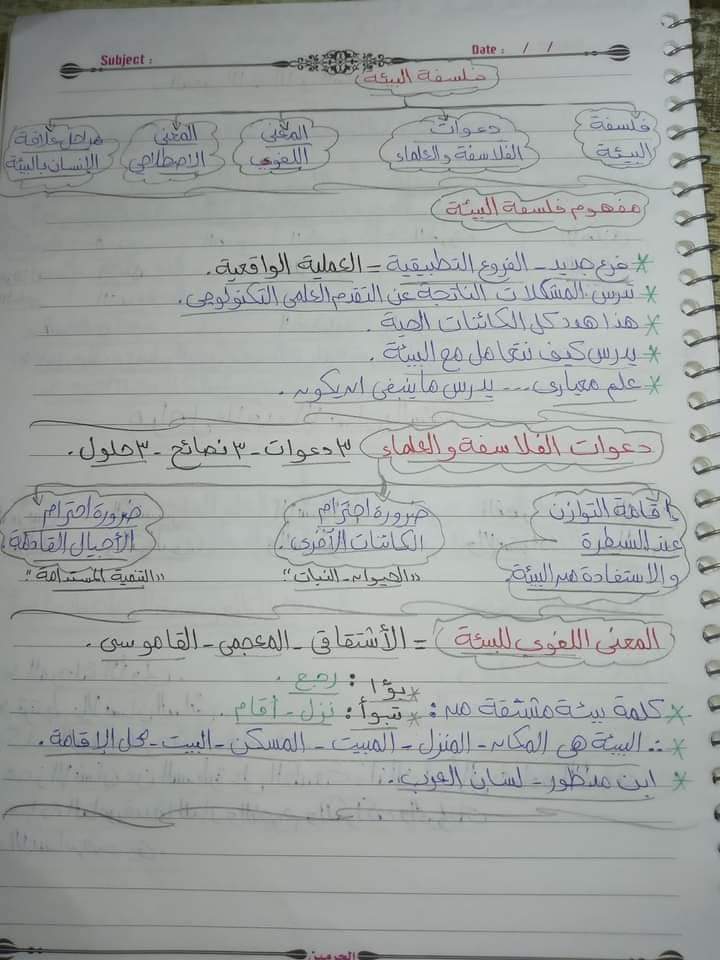 Subject :
Date : / /
فلسفة البيئة
فلسفة البيئة
دعوات الفلاسفة والعلماء
المعنى اللغوي
المعنى الاصطلاحي
مراحل علاقة الإنسان بالبيئة
مفهوم فلسفة البيئة
* فرع جديد - الفروع التطبيقية = العملية الواقعية.
* تدرس المشكلات الناتجة عن التقدم العلمي التكنولوجي.
* هذا هدد كل الكائنات الحية.
* يدرس كيف نتعامل مع البيئة.
* علم معياري ... يدرس ما ينبغي ان يكون.
دعوات الفلاسفة والعلماء ٣ دعوات - ٣ نصائح - ٣ حلول.
اقامة التوازن عند السيطرة والاستفادة من البيئة.
ضرورة احترام الكائنات الأخرى.
"الحيوان - النبات"
ضرورة احترام الأجيال القادمة.
"التنمية المستدامة".
المعنى اللغوي للبيئة = الأشتقاقي - المعجمي - القاموسي.
* بوأ : رجع.
* كلمة بيئة مشتقة من : * تبوأ : نزل - أقام
* ∴ البيئة هي المكان - المنزل - المبيت - المسكن - البيت - محل الإقامة.
* ابن منظور - لسان العرب.
الحرمين